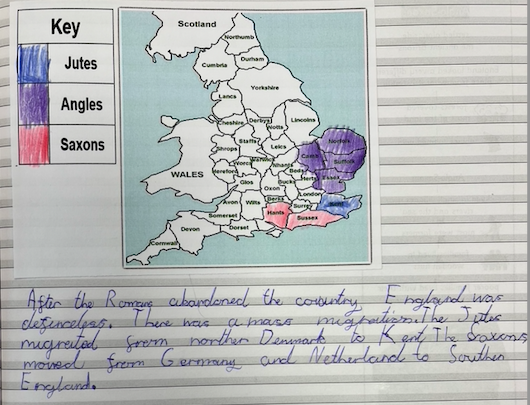 Key
Jutes
Angles
Saxons
Scotland
Northumb
Cumbria
Durham
Yorkshire
Lancs
Cheshire
Derbys
Notts
Lincolns
Shrops
Staffs
Leics
Norfolk
WALES
Hereford
Worcs
Warwick
Nhants
Cambs
Suffolk
Glos
Oxon
Bucks
Beds
Herts
Essex
London
Avon
Wilts
Berks
Surrey
Somerset
Hants
Sussex
Devon
Dorset
Cornwall
After the Romans abandoned the country England was
defenceless. There was a mass migration. The Jutes
migrated from northen Denmark to Kent The Saxons
moved from Germany and Netherland to Southen
England.